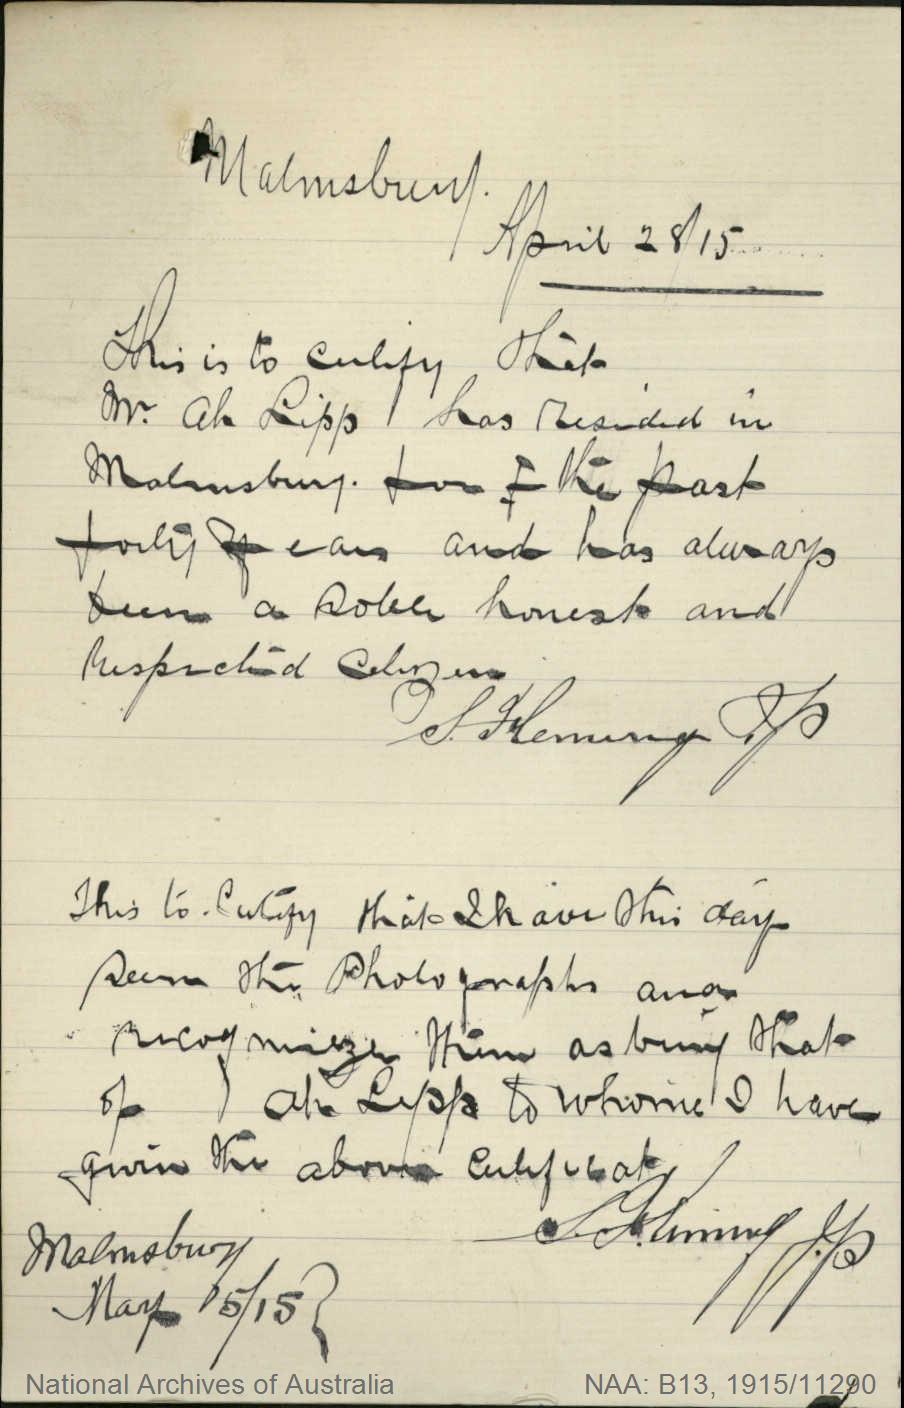 Malmsbury.
April 28/15
This is to certify that
Mr. Ah Lipp has resided in
Malmsbury. for the past
forty years and has always
been a sober honest and
respected citizen
S. Fleming J.P
This to Certify that I have this day
seen the Photographs and
recognise them as being that
of Ah Lipp to whome I have
given the above certificate
S. Fleming J.P
Malmsbury
May 5/15
National Archives of Australia
NAA: B13, 1915/11290